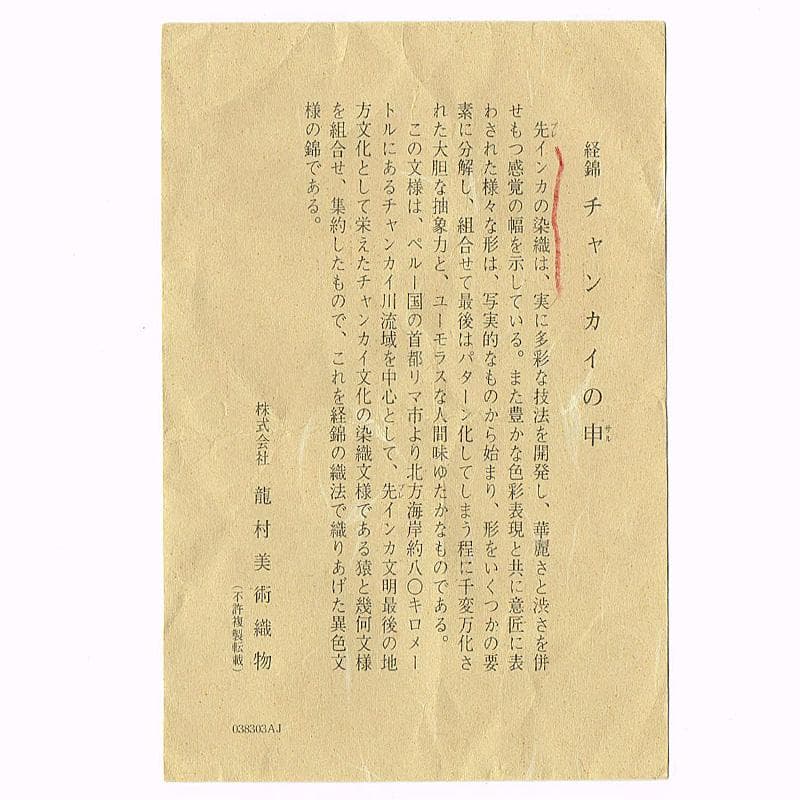 経錦 チャンカイの申
サル
先インカの染織は、実に多彩な技法を開発し、華麗さと渋さを併
プレ
せもつ感覚の幅を示している。また豊かな色彩表現と共に意匠に表
わされた様々な形は、写実的なものから始まり、形をいくつかの要
素に分解し、組合せて最後はパターン化してしまう程に千変万化さ
れた大胆な抽象力と、ユーモラスな人間味ゆたかなものである。
この文様は、ペルー国の首都リマ市より北方海岸約八〇キロメー
トルにあるチャンカイ川流域を中心として、先インカ文明最後の地
プレ
方文化として栄えたチャンカイ文化の染織文様である猿と幾何文様
を組合せ、集約したもので、これを経錦の織法で織りあげた異色文
様の錦である。
株式会社 龍村美術織物
(不許複製転載)
038303AJ